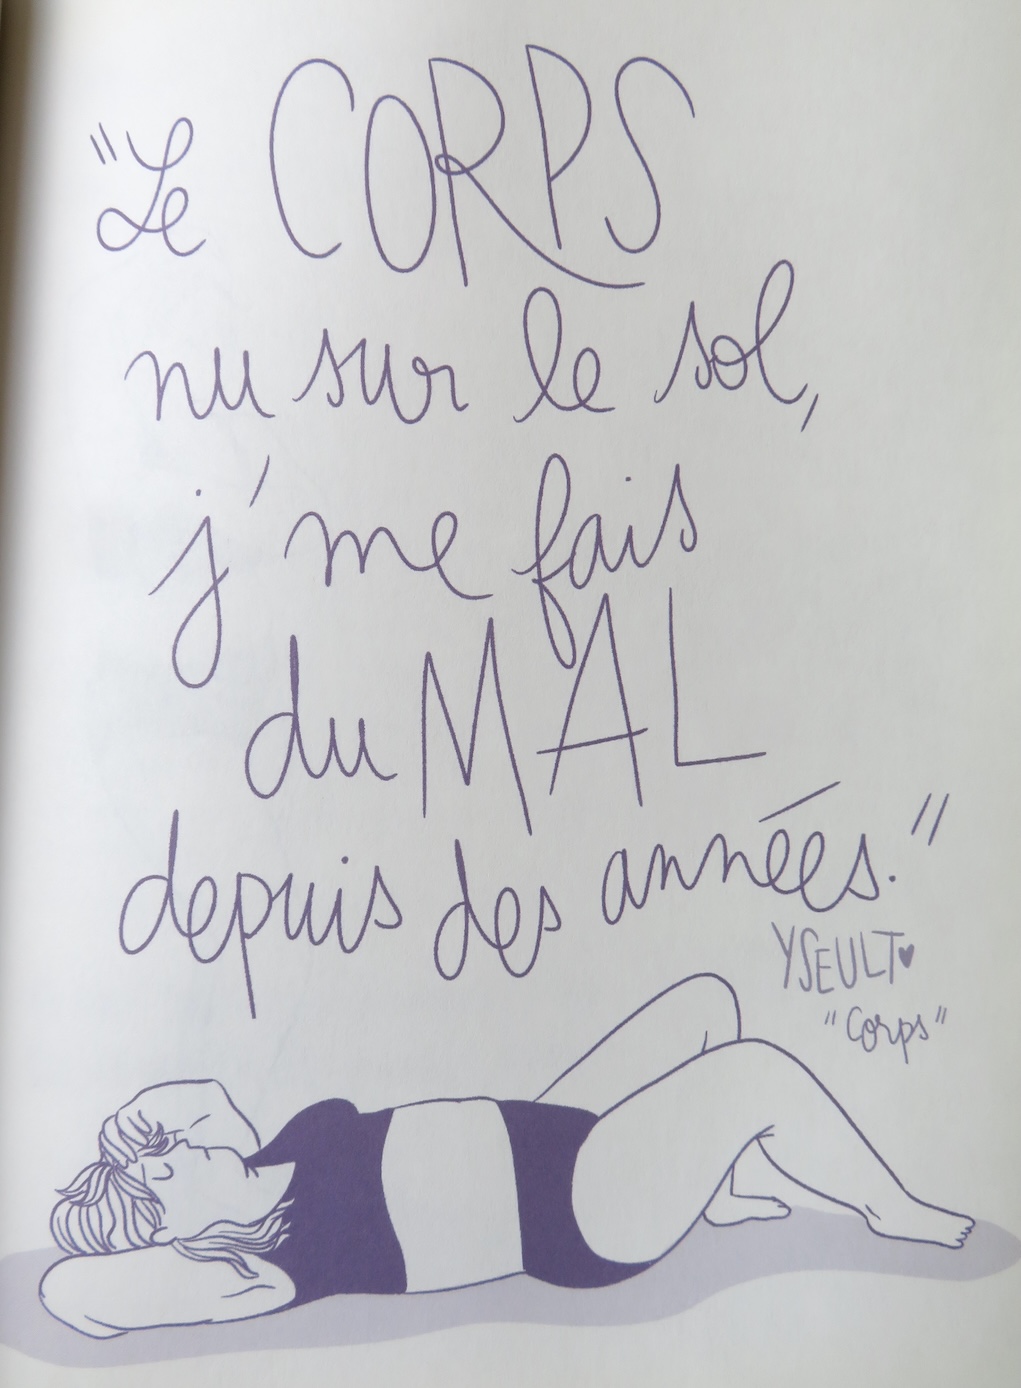 "Le CORPS
nu sur le sol,
j'me fais
du MAL
depuis des années."
YSEULT♥
"Corps"